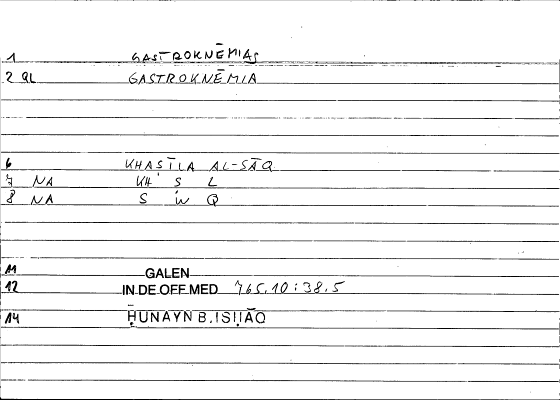 1 GASTROKNĒMIAS
2 GL GASTROKNĒMIA
6 KHAṢĪLA AL-SĀQ
7 NA KH Ṣ L
8 NA S W Q
11 GALEN
12 IN DE OFF.MED 765.10:38.5
14 ḤUNAYN B.ISḤĀQ